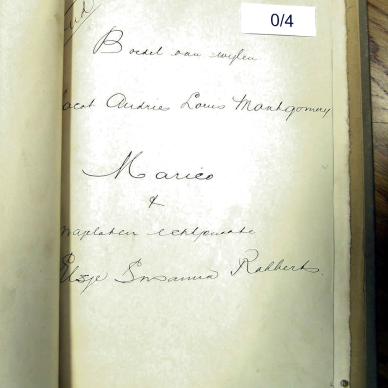 0/4
Boedel van wylen
Jacob Andries Louis Montgomery
Marico
&
nagelaten echtgenoote
Elsje Susanna Robberts.